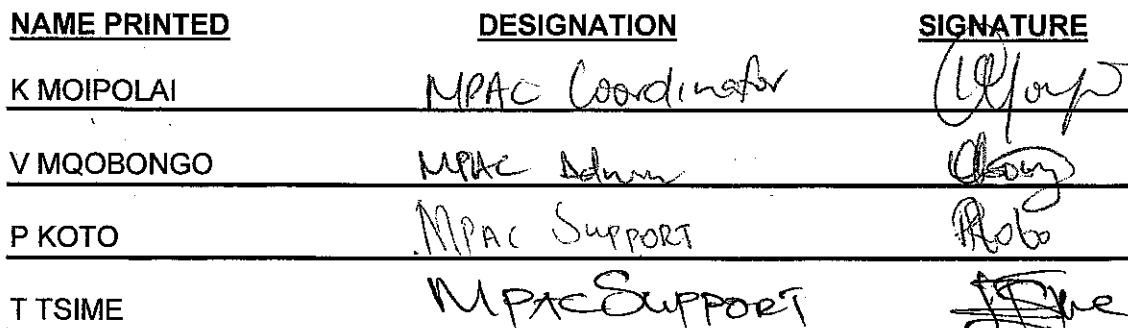 NAME PRINTED DESIGNATION SIGNATURE
K MOIPOLAI MPAC Coordinator
V MQOBONGO MPAC Admin
P KOTO MPAC SUPPORT
T TSIME MPAC SUPPORT